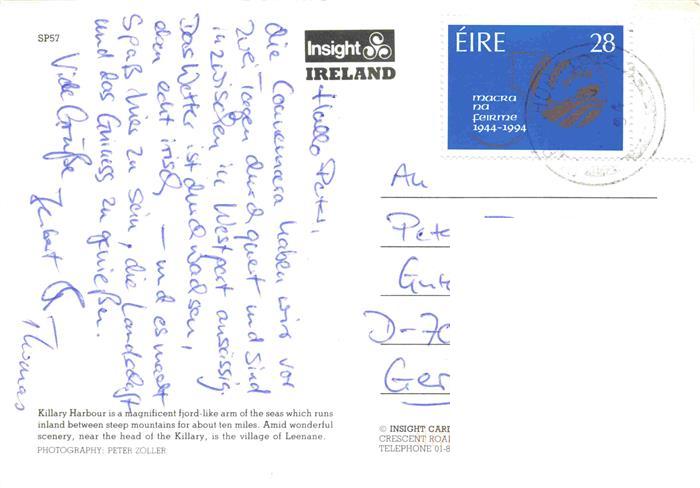 SP57
Insight
IRELAND
ÉIRE 28
macra
na
feirme
1944-1994
Hallo Peter,
die Connemara haben wir vor
zwei Tagen durchquert und sind
inzwischen in Westport ansässig.
Das Wetter ist durchwachsen,
den echt irisch, — und es macht
Spaß hier zu sein, die Landschaft
und das Guiness zu genießen.
Viele Grüße Herbert & Thomas
An
Pete
Gute
D-70
Ger
Killary Harbour is a magnificent fjord-like arm of the seas which runs
inland between steep mountains for about ten miles. Amid wonderful
scenery, near the head of the Killary, is the village of Leenane.
PHOTOGRAPHY: PETER ZOLLER
© INSIGHT CARD
CRESCENT ROAD
TELEPHONE 01-8